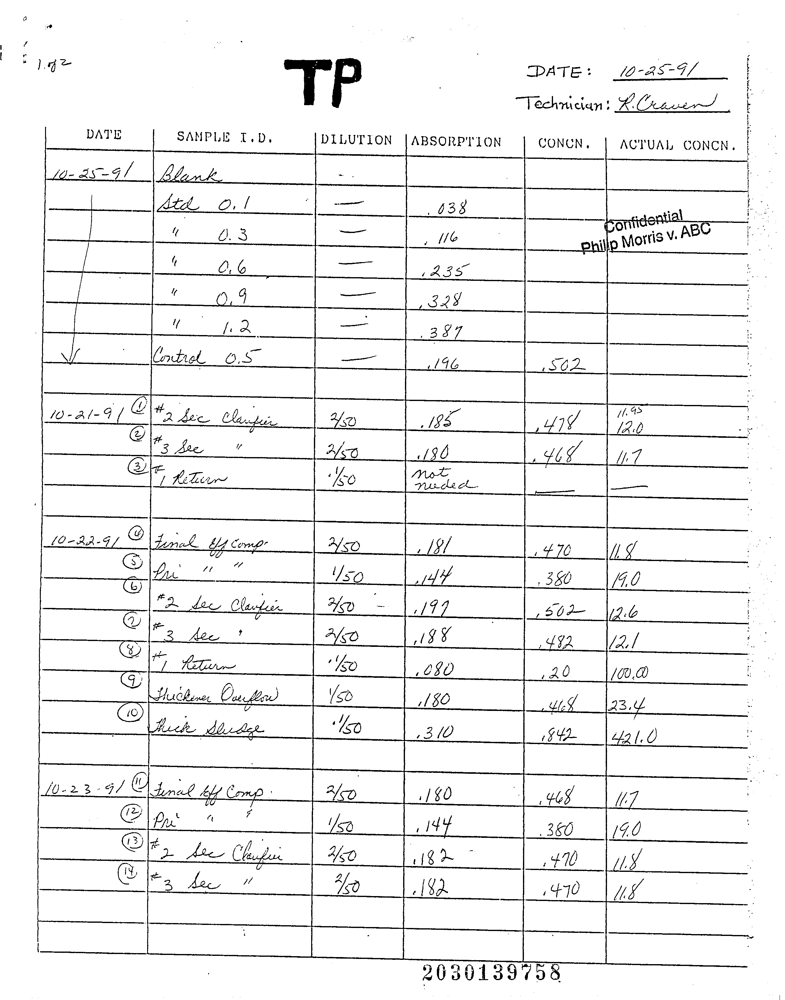 1 of 2
TP
DATE: 10-25-91
Technician: R. Craven
DATE SAMPLE I.D. DILUTION ABSORPTION CONCN. ACTUAL CONCN.
10-25-91 Blank -
Std 0.1 — .038
" 0.3 — .116
Confidential
Philip Morris v. ABC
" 0.6 — .235
" 0.9 — .328
" 1.2 — .387
Control 0.5 — .196 .502
10-21-91 ① #2 Sec Clarifier 2/50 .185 .478 11.95 12.0
② #3 Sec " 2/50 .180 .468 11.7
③ #1 Return .1/50 not needed — —
10-22-91 ④ Final Eff Comp. 2/50 .181 .470 11.8
⑤ Pri " " 1/50 .144 .380 19.0
⑥ #2 Sec Clarifier 2/50 - .197 .502 12.6
⑦ #3 Sec " 2/50 .188 .482 12.1
⑧ #1 Return .1/50 .080 .20 100.00
⑨ Thickener Overflow 1/50 .180 .468 23.4
⑩ Thick Sludge .1/50 .310 .842 421.0
10-23-91 ⑪ Final Eff Comp. 2/50 .180 .468 11.7
⑫ Pri " " 1/50 .144 .380 19.0
⑬ #2 Sec Clarifier 2/50 .182 .470 11.8
⑭ #3 Sec " 2/50 .182 .470 11.8
2030139758